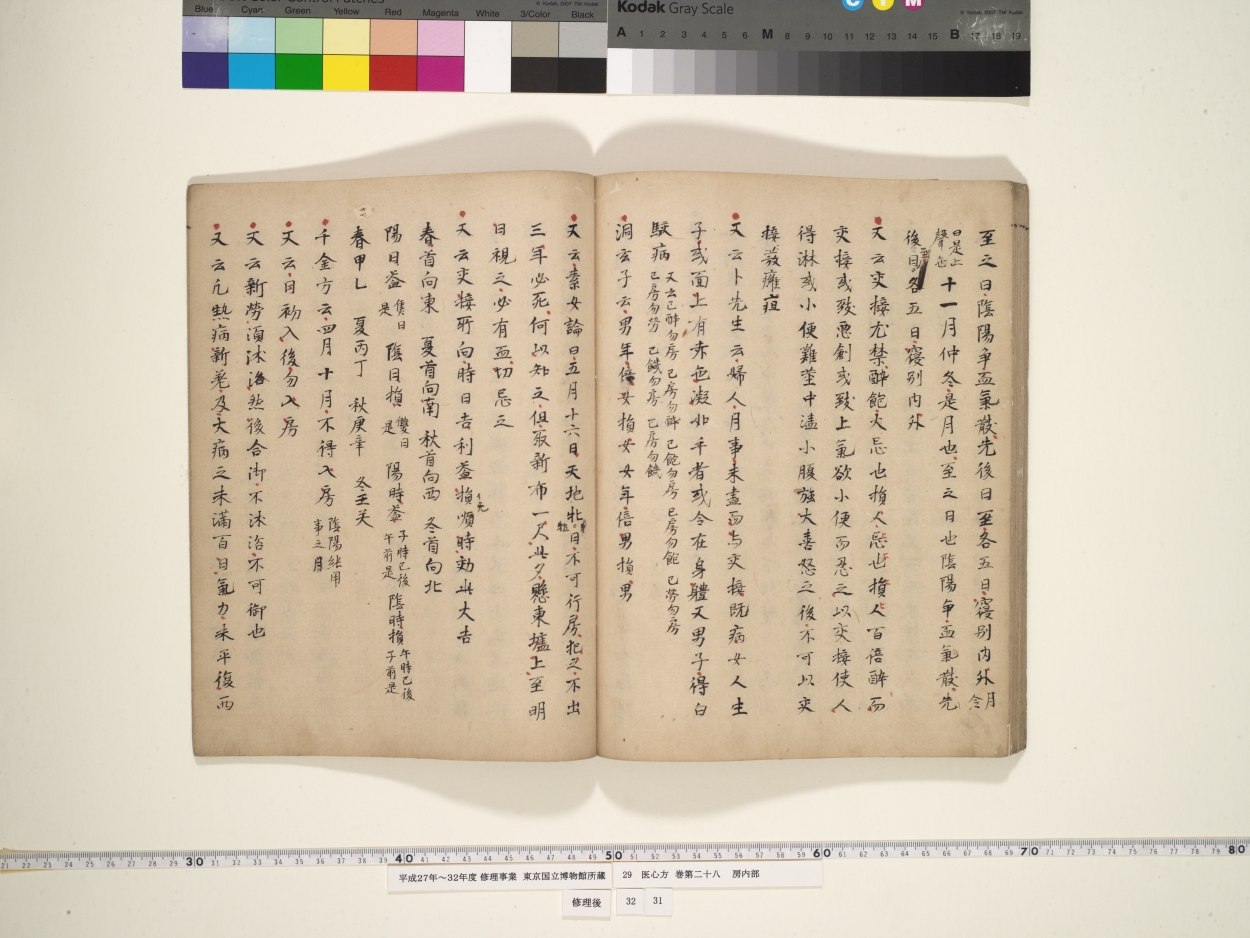 Blue Cyan Green Yellow Red Magenta White 3/Color Black
© Kodak, 2007 TM: Kodak
Kodak Gray Scale
C Y M
© Kodak, 2007 TM: Kodak
A 1 2 3 4 5 6 M 8 9 10 11 12 13 14 15 B 17 18 19
至之日陰陽爭血氣散先後日至各五日寢別内外月令
曰是上聲也十一月仲冬是月也至之日也陰陽爭血氣散先
後日至各五日寢別内外
又云交接尤禁醉飽大忌也損人忌也損人百倍醉而
交接或致惡創或致上氣欲小便而忍之以交接使人
得淋或小便難莖中澁小腹強大喜怒之後不可以交
接發癰疽
又云卜先生云婦人月事未盡而与交接既病女人生
子或面上有赤色凝如手者或令在身體又男子得白
駮病又云已醉勿房已房勿醉已飽勿房已房勿飽已勞勿房
已房勿勞已饑勿房已房勿饑
洞玄子云男年倍女損女女年倍男損男
又云素女論曰五月十六日天地牝牡日不可行房犯之不出
三年必死何以知之但取新布一尺此夕懸東墟上至明
日視之必有血切忌之
又云交接所向時日吉利益損順時効此大吉
春首向東 夏首向南 秋首向西 冬首向北
陽日益隻日是 陰日損雙日是 陽時益子時已後午前是 陰時損午時已後子前是
春甲乙 夏丙丁 秋庚辛 冬壬癸
千金方云四月十月不得入房陰陽純用事之月
又云日初入後勿入房
又云新勞須沐浴然後合御不沐浴不可御也
又云凡熱病新差及大病之未滿百日氣力未平復而
30 40 50 60 70 80
平成27年〜32年度 修理事業 東京国立博物館所蔵
29 医心方 巻第二十八 房内部
修理後 32 31